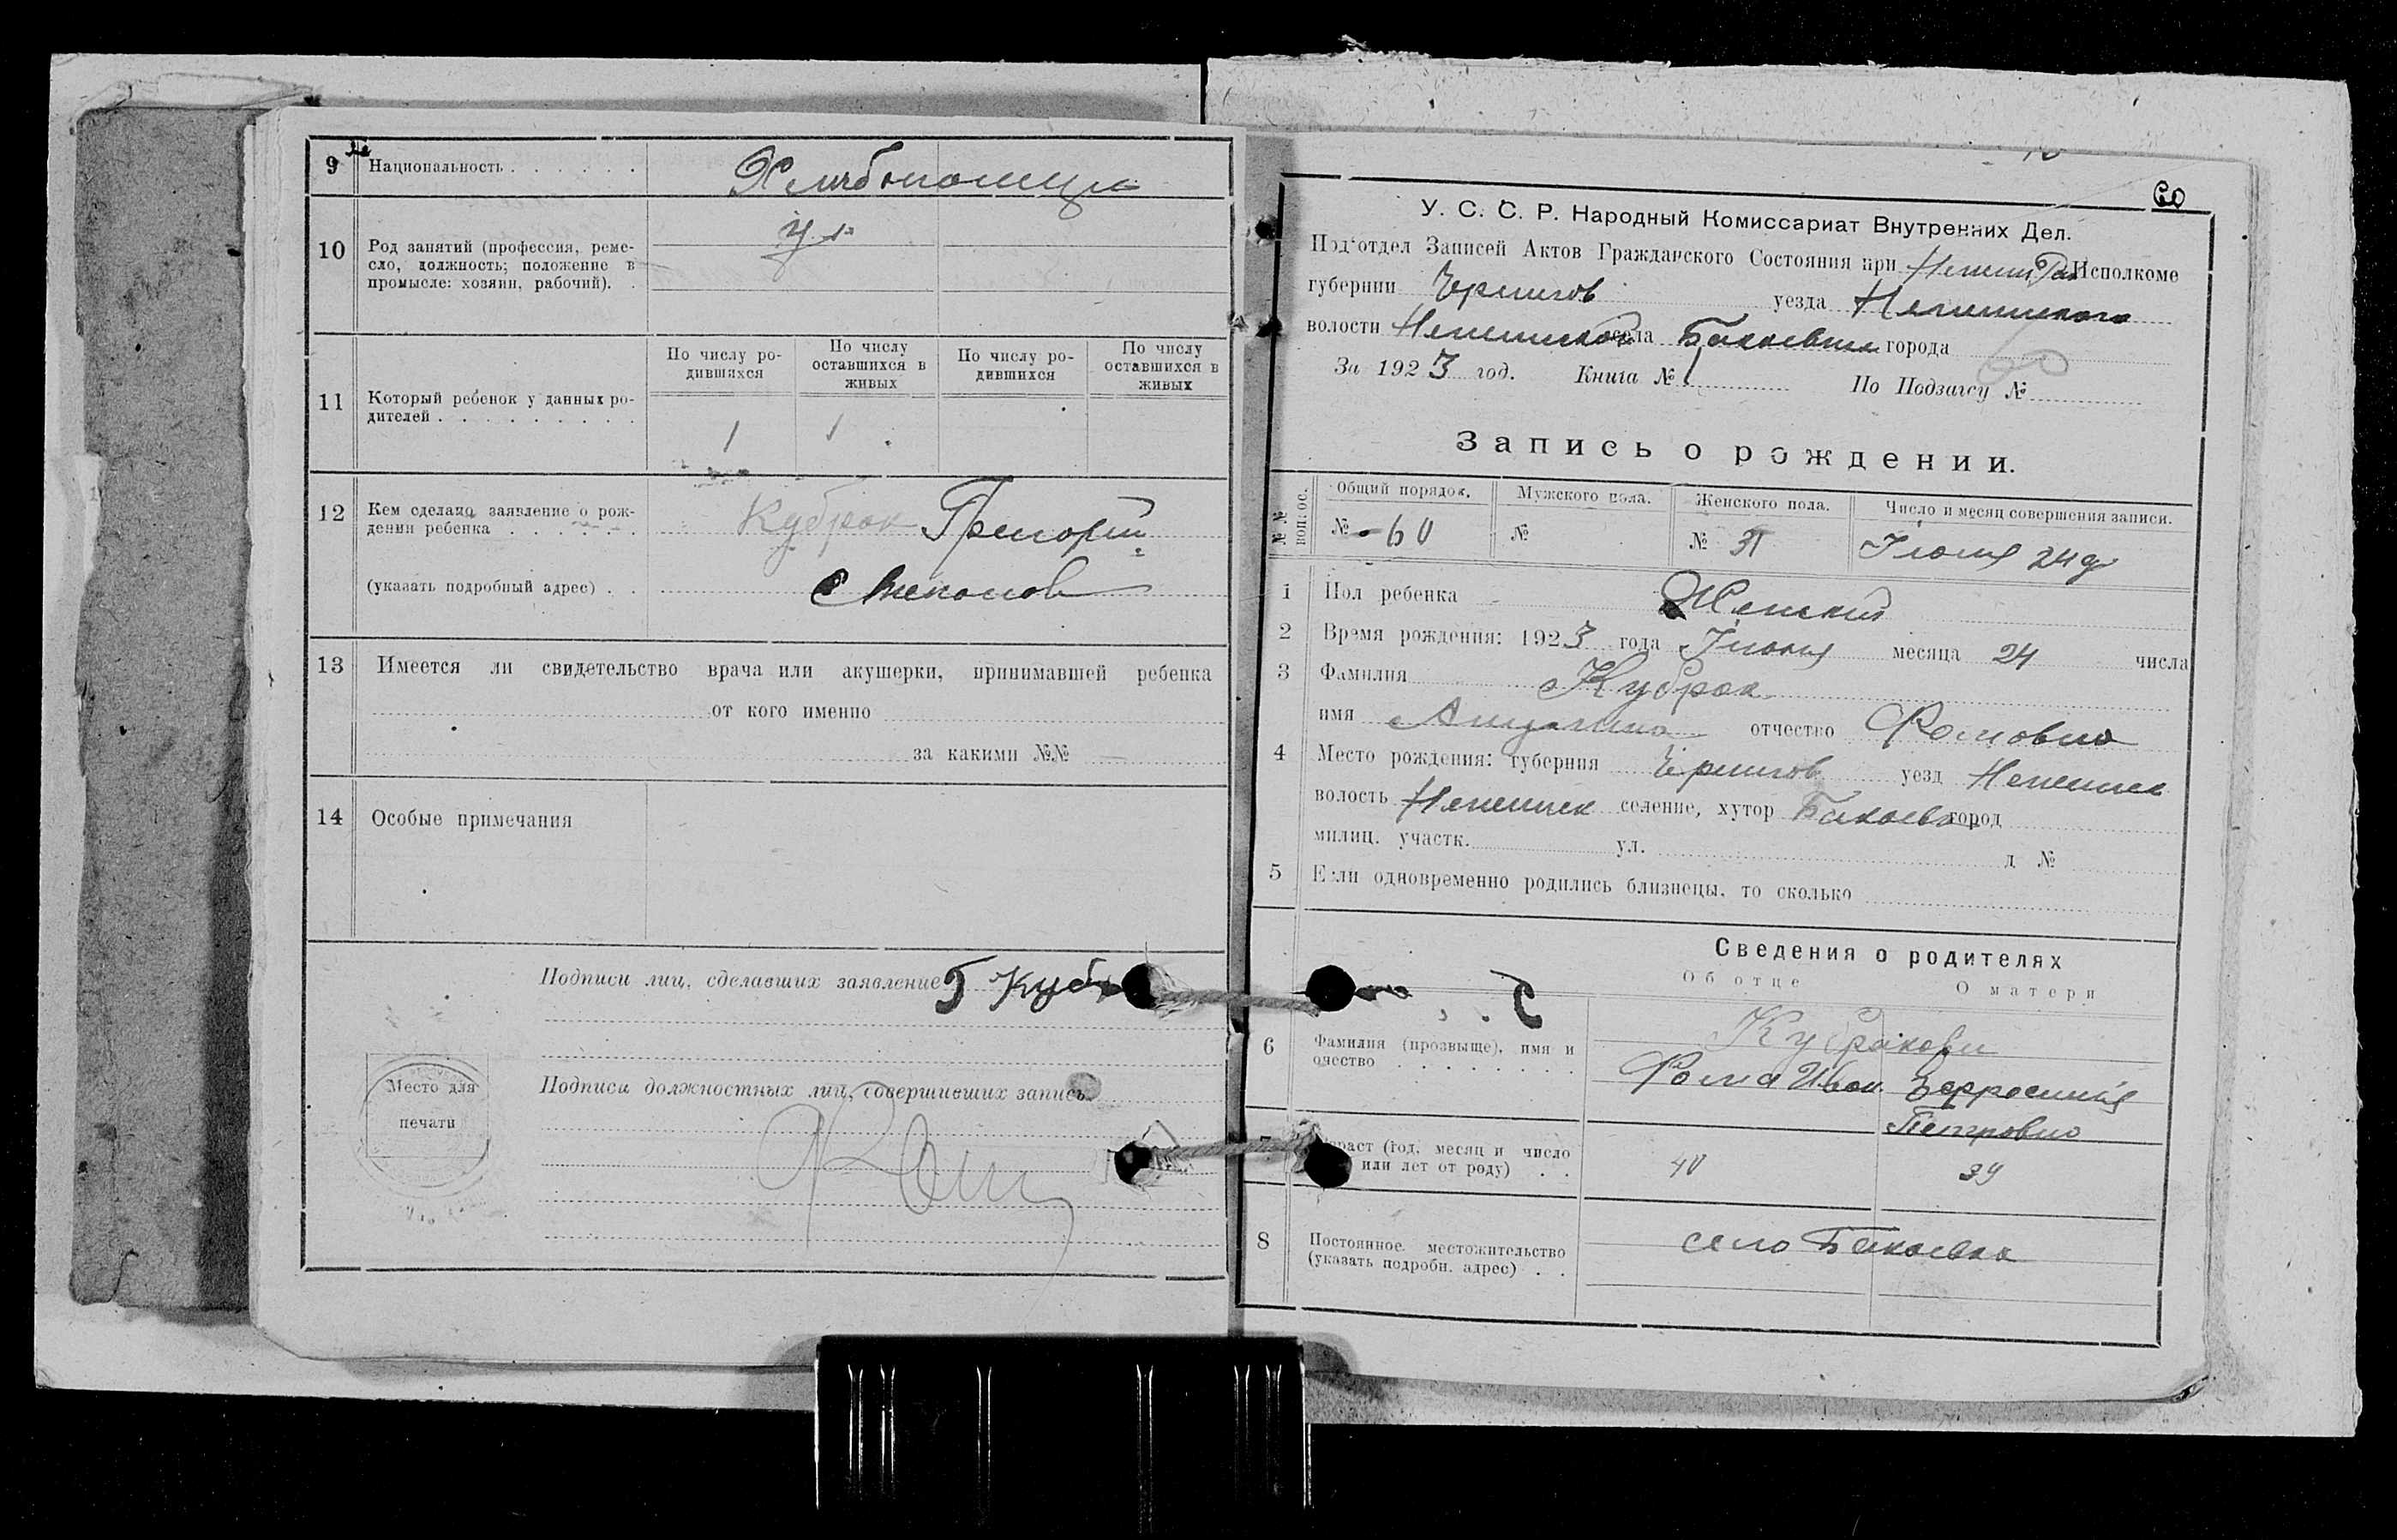 9 Национальность . . . . . . Хлебопашцы
10 Род занятий (профессия, реме-
сло, должность; положение в
промысле: хозяин, рабочий). .
11 Который ребенок у данных ро-
дителей . . . . . . . . .
По числу ро-
дившихся
По числу
оставшихся в
живых
По числу ро-
дившихся
По числу
оставшихся в
живых
1 1
12 Кем сделано заявление о рож-
дении ребенка . . . . . . Кубрак Григорий
(указать подробный адрес) . . Степанов
13 Имеется ли свидетельство врача или акушерки, принимавшей ребенка
от кого именно
за какими №№
14 Особые примечания
Подписи лиц, сделавших заявление Г Куб
Место для
печати
Подписи должностных лиц, совершивших запись
60
У. С. С. Р. Народный Комиссариат Внутренних Дел.
Подотдел Записей Актов Гражданского Состояния при Нежин Рай Исполкоме
губернии Чернигов уезда Неженского
волости Неженской села Бакаевки города
За 1923 год. Книга № 1 По Подзагсу №
Запись о рождении.
№№ вопрос.
Общий порядок. Мужского пола. Женского пола. Число и месяц совершения записи.
№ 60 № № 31 Июня 24 д
1 Пол ребенка Женский
2 Время рождения: 1923 года Июня месяца 24 числа
3 Фамилия Кубрак
имя отчество Фомовна
4 Место рождения: губерния Чернигов уезд Неженск
волость Неженск селение, хутор Бакаевка город
милиц. участк. ул. д №
5 Если одновременно родились близнецы, то сколько
Сведения о родителях
Об отце О матери
6 Фамилия (прозвыще), имя и
очество . . . . . . . .
Кубракови
Фома Иван. Ефросинія
Петровна
7 Возраст (год, месяц и число
или лет от роду) . . 40 39
8 Постоянное местожительство
(указать подробн. адрес) . .
село Бакаевка